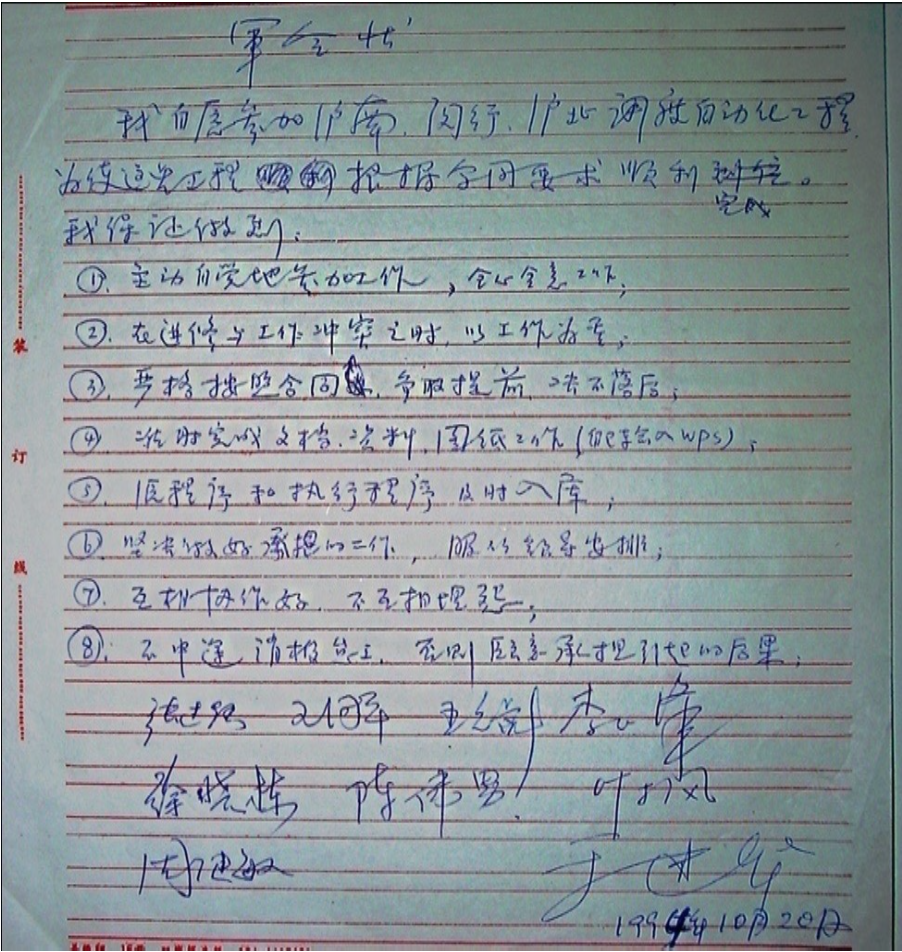 軍令状
我自愿参加沪南、闵行、沪北调度自动化工程
为使这次工程顺利根据合同要求顺利到位。
完成
我保证做到:
①. 主动自觉地参加工作,全心全意工作;
②. 在进修与工作冲突之时,以工作为重;
③. 严格按照合同,争取提前,决不落后;
④. 准时完成文档、资料、图纸工作(能输入WPS);
⑤. 源程序和执行程序及时入库;
⑥. 坚决做好承担的工作,服从领导安排;
⑦. 互相协作好,不互相埋怨;
⑧. 不中途请假怠工,否则愿意承担引起的后果;
徐晓栋 陈伟
周建敏
1994年10月20日
装
订
线